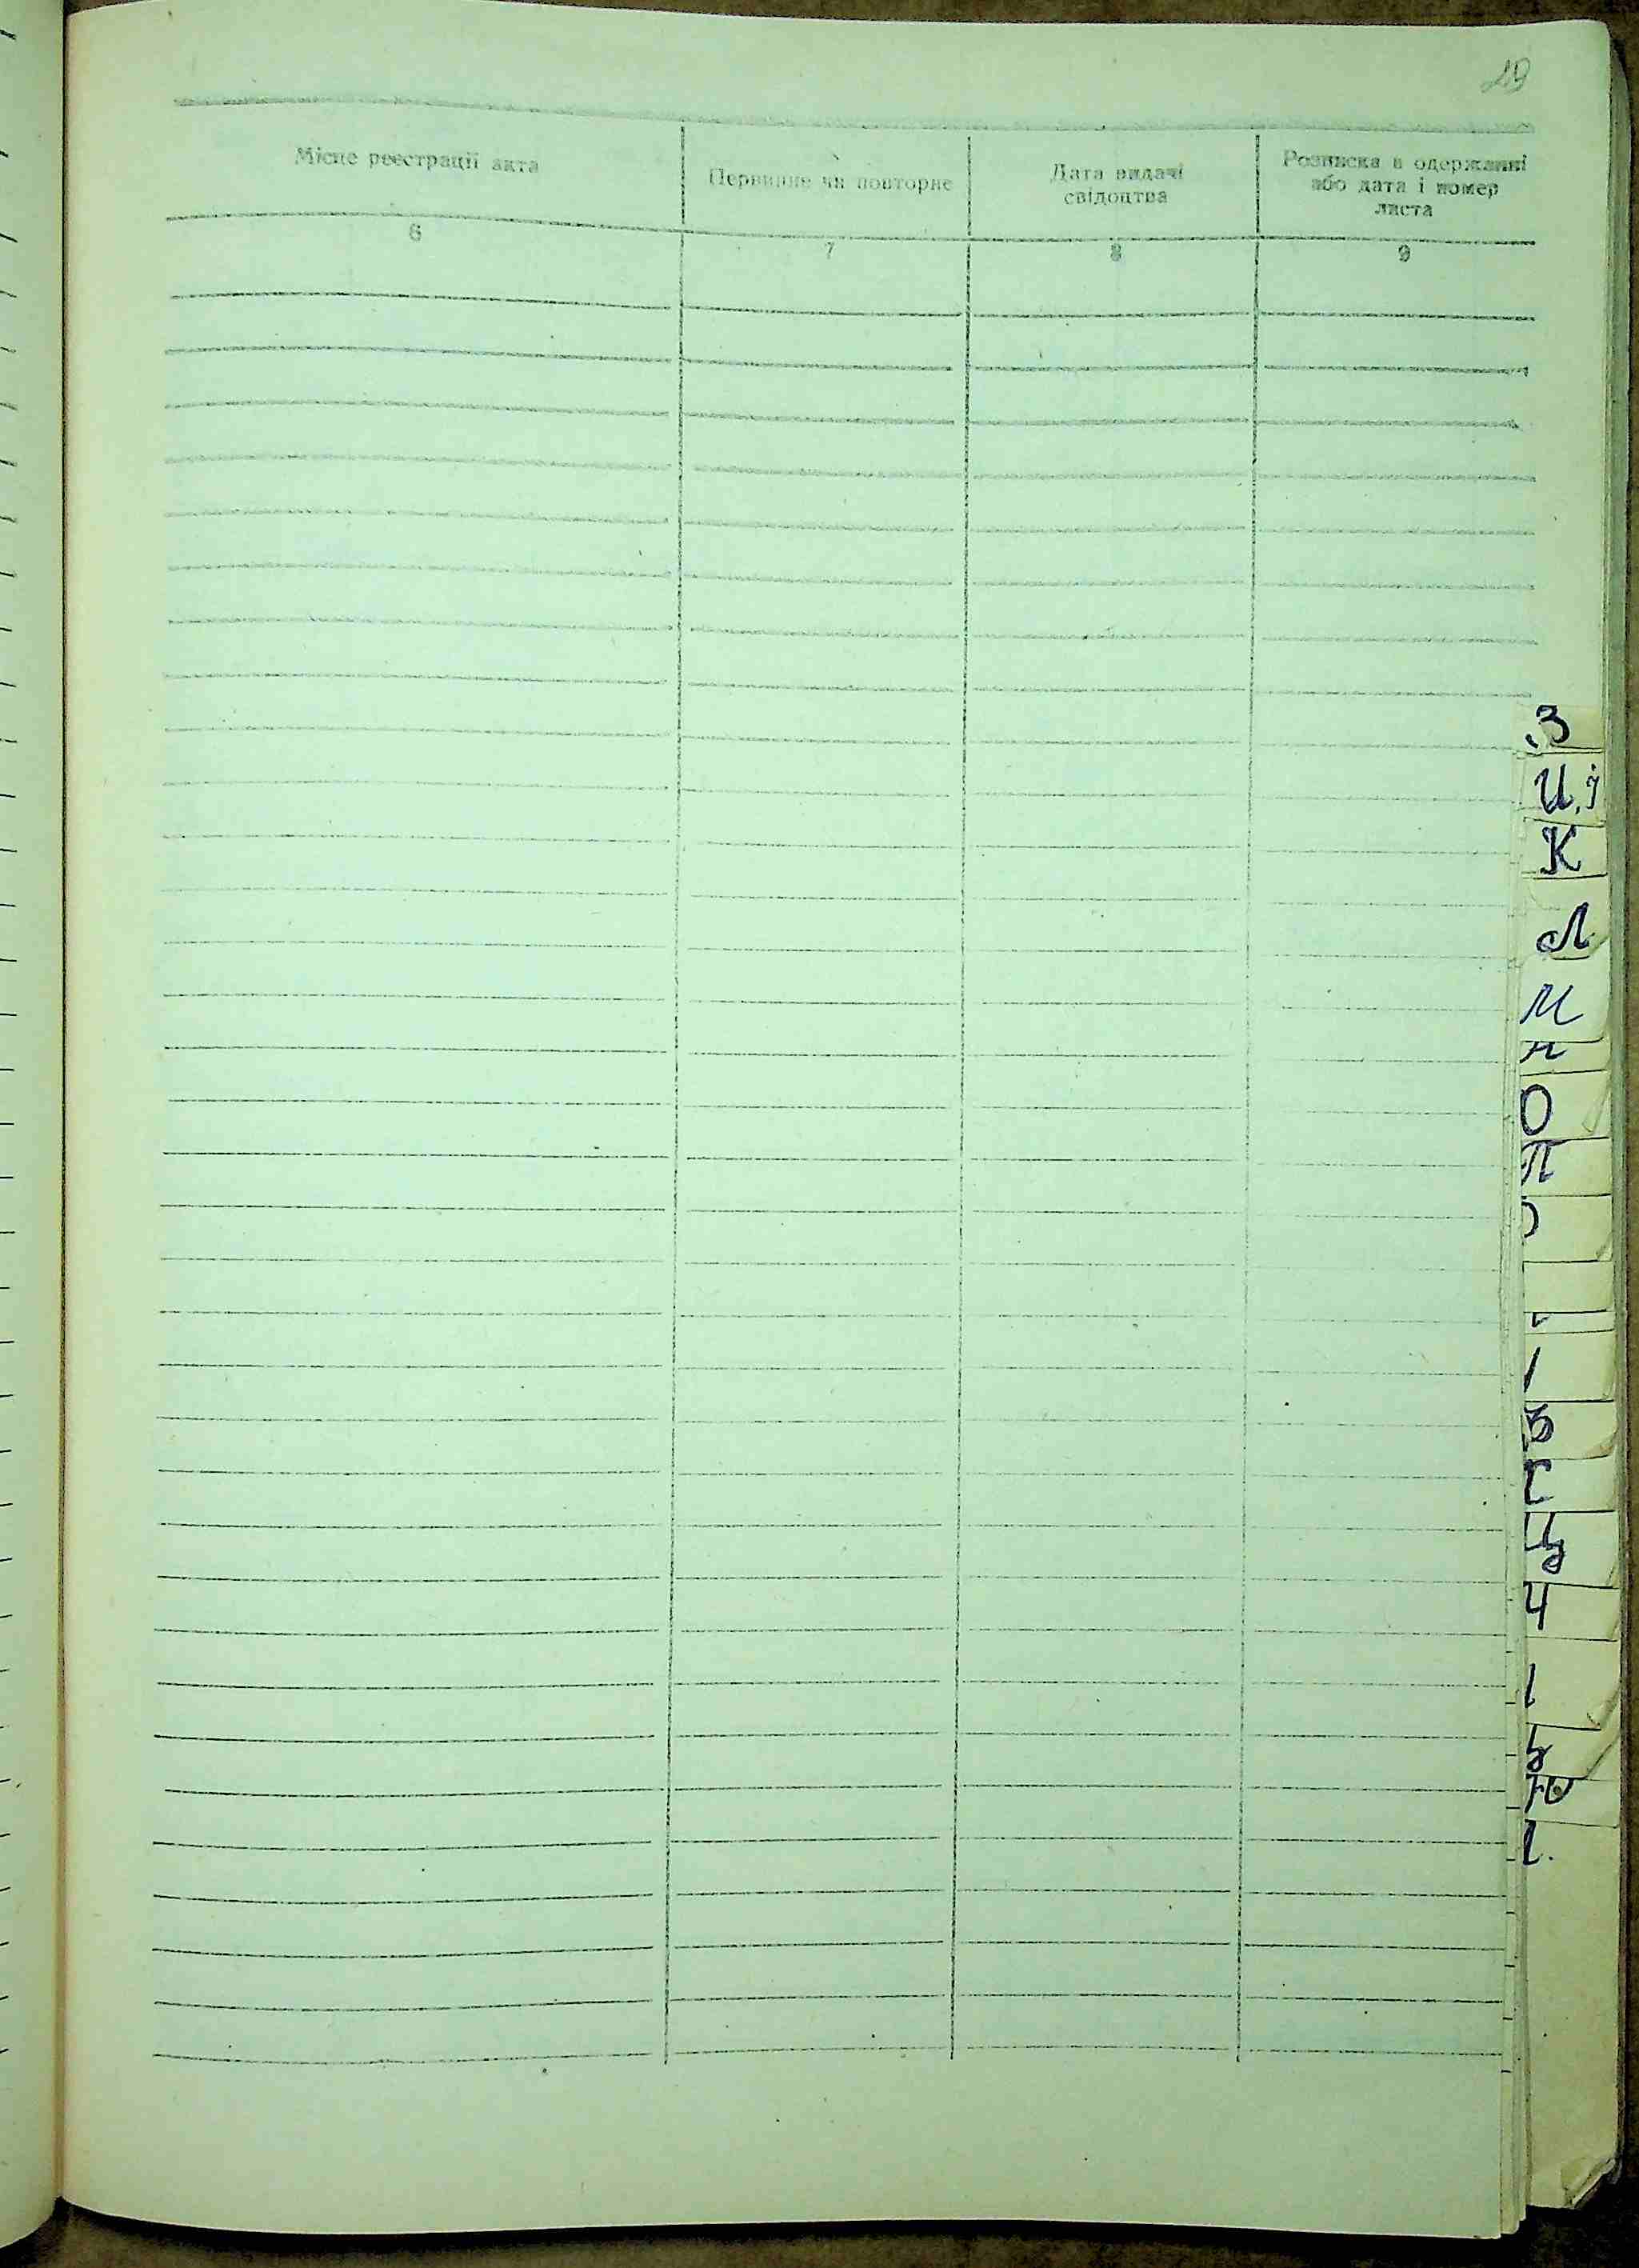 29
Місце реєстрації акта
Первинне чи повторне
Дата видачі
свідоцтва
Розписка в одержанні
або дата і номер
листа
6
7
8
9
З
И, і
К
Л
М
Н
О
П
Ц
Ч
Ю